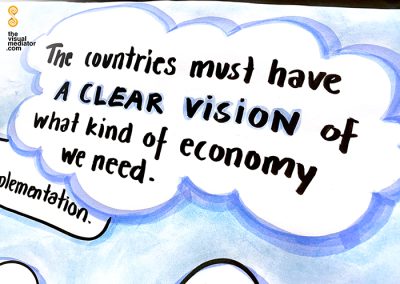 the
visual
mediator
.com
The countries must have
A CLEAR VISION of
what kind of economy
we need.
plementation.